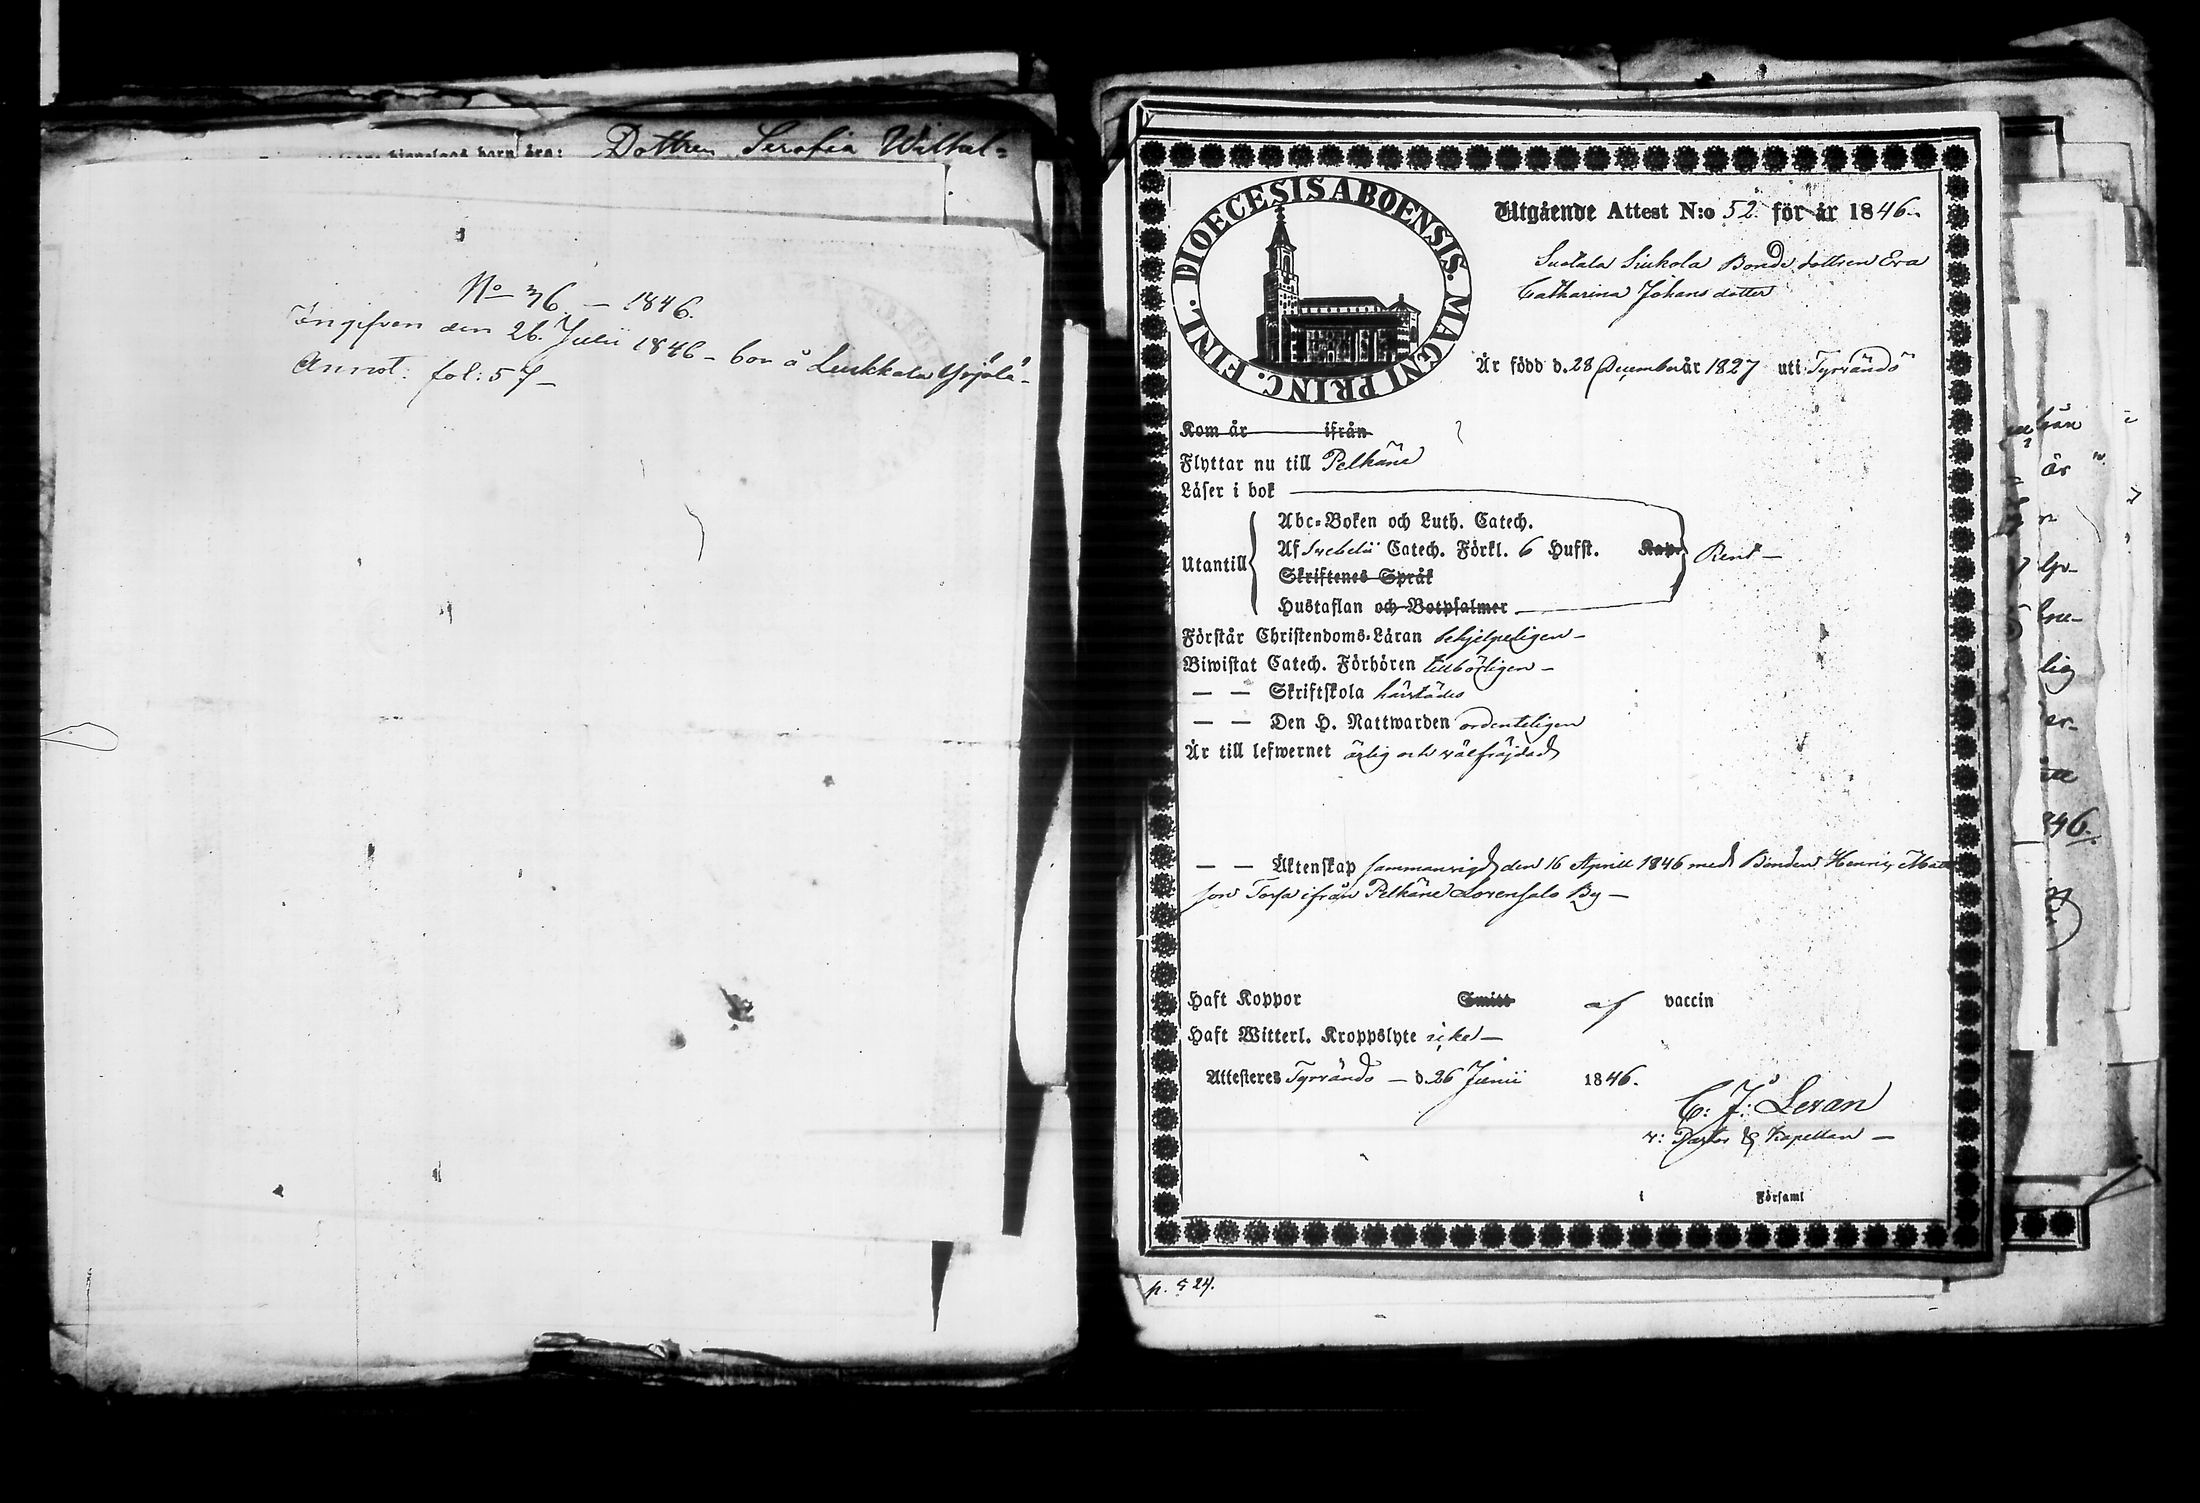 barn äro: Dottren Serafia Wilhel=
No 36 – 1846.
Ingifven den 26. Julii 1846 – bor å Luikkala Yrjölä –
Annot: fol: 57 –
DIOECESIS ABOENSIS. MAGNI PRINC. FINL.
Utgående Attest N:o 52. för år 1846.
Suotala Siukola Bondedottren Eva
Catharina Johansdotter
Är född d. 28 December år 1827 uti Tyrvändö
Kom år ifrån
Flyttar nu till Pelkäne
Läser i bok
Abc-Boken och Luth. Catech.
Utantill Af Svebelii Catech. Förkl. 6 Hufst. Kap. Rent –
Skriftenes Språk
Hustaflan och Botpsalmer
Förstår Christendoms-Läran behjelpeligen –
Biwistat Catech. Förhören tillbörligen –
— — Skriftskola härstädes
— — Den H. Nattwarden ordenteligen
Är till lefwernet ärlig och välfräjdad
— — Äktenskap sammanvigd den 16 Aprill 1846 med Bonden Henric Matts
son Torfa ifrån Pelkäne Lovensalo By –
Haft Koppor Smitt af vaccin
Haft Witterl. Kroppslyte icke –
Attesteres Tyrvändö – d. 26 Junii 1846.
C: J: Levan
v: Pastor & Kapellan –
i Församl
p. 524.
hän
år
lig
er-
846.